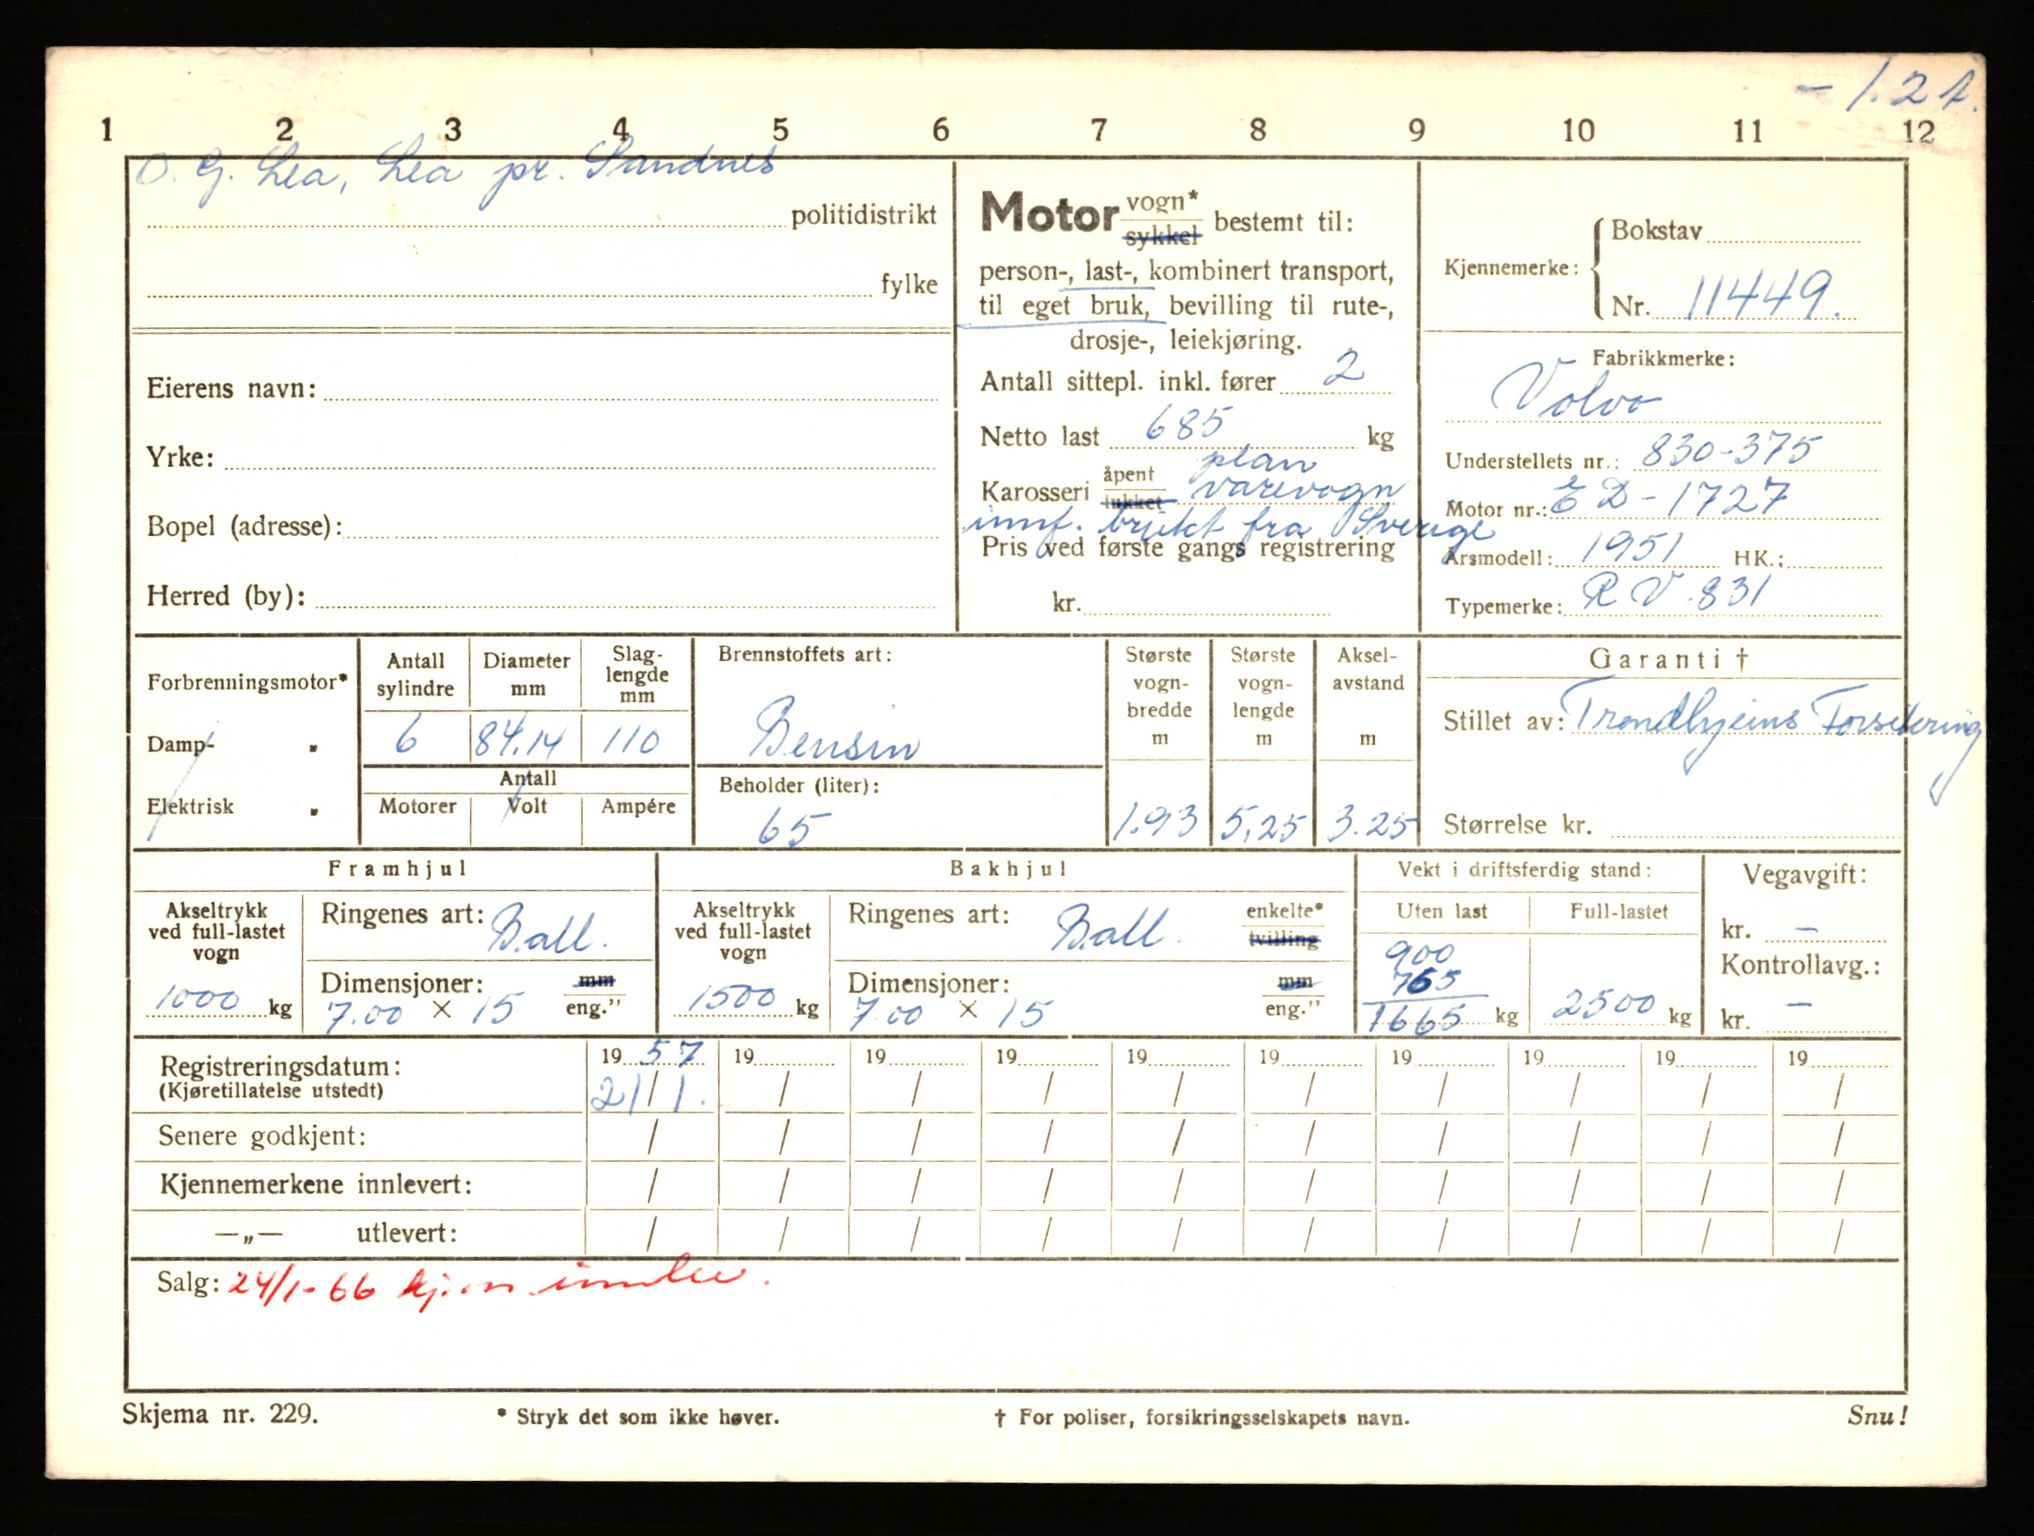 - 1.2 t.
1 2 3 4 5 6 7 8 9 10 11 12
O. G. Lea, Lea pr. Sandnes
politidistrikt
fylke
Eierens navn:
Yrke:
Bopel (adresse):
Herred (by):
Motor vogn* sykkel bestemt til:
person-, last-, kombinert transport,
til eget bruk, bevilling til rute-,
drosje-, leiekjøring.
Antall sittepl. inkl. fører 2
Netto last 685 kg
plan
Karosseri åpent lukket varevogn
innf. brukt fra Sverige
Pris ved første gangs registrering
kr.
Kjennemerke: Bokstav
Nr. 11449.
Fabrikkmerke:
Volvo
Understellets nr.: 830-375
Motor nr.: ED-1727
Årsmodell: 1951 HK.:
Typemerke: RV.831
Forbrenningsmotor*
Damp- "
Elektrisk "
Antall sylindre Diameter mm Slag-lengde mm
6 84.14 110
Antall
Motorer Volt Ampére
Brennstoffets art:
Bensin
Beholder (liter):
65
Største vogn-bredde m Største vogn-lengde m Aksel-avstand m
1.93 5,25 3.25
Garanti †
Stillet av: Trondhjems Forsikring
Størrelse kr.
Framhjul
Akseltrykk ved full-lastet vogn
1000 kg
Ringenes art: Ball.
Dimensjoner: mm
7.00 × 15 eng."
Bakhjul
Akseltrykk ved full-lastet vogn
1500 kg
Ringenes art: Ball. enkelte* tvilling
Dimensjoner: mm
7.00 × 15 eng."
Vekt i driftsferdig stand:
Uten last Full-lastet
900
765
1665 kg 2500 kg
Vegavgift:
kr. -
Kontrollavg.:
kr. -
Registreringsdatum: 19 57 19 19 19 19 19 19 19 19 19
(Kjøretillatelse utstedt) 21/1. / / / / / / / / /
Senere godkjent: / / / / / / / / / /
Kjennemerkene innlevert: / / / / / / / / / /
—„— utlevert: / / / / / / / / / /
Salg: 24/1-66 kjm innlev.
Skjema nr. 229. * Stryk det som ikke høver. † For poliser, forsikringsselskapets navn. Snu!